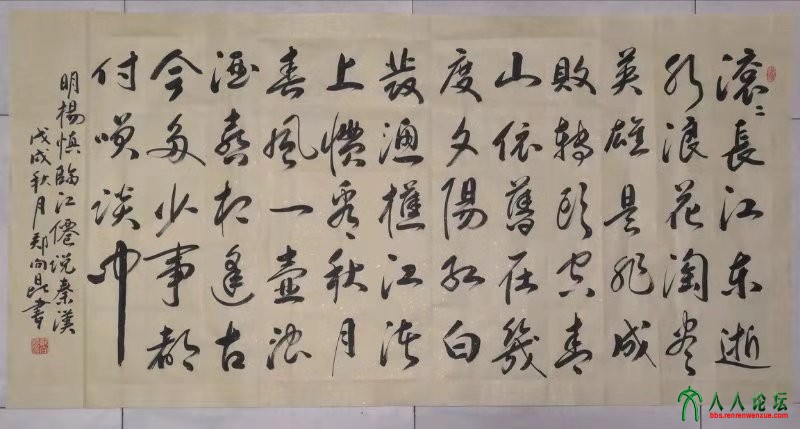 滚滚長江东逝
水浪花淘尽
英雄是非成
败转头空青
山依舊在幾
度夕陽红白
髮渔樵江渚
上惯看秋月
春风一壶浊
酒喜相逢古
今多少事都
付笑谈中
明楊慎臨江僊说秦漢
戊戌秋月郑向昆書
人人论坛
bbs.renrenwenxue.com